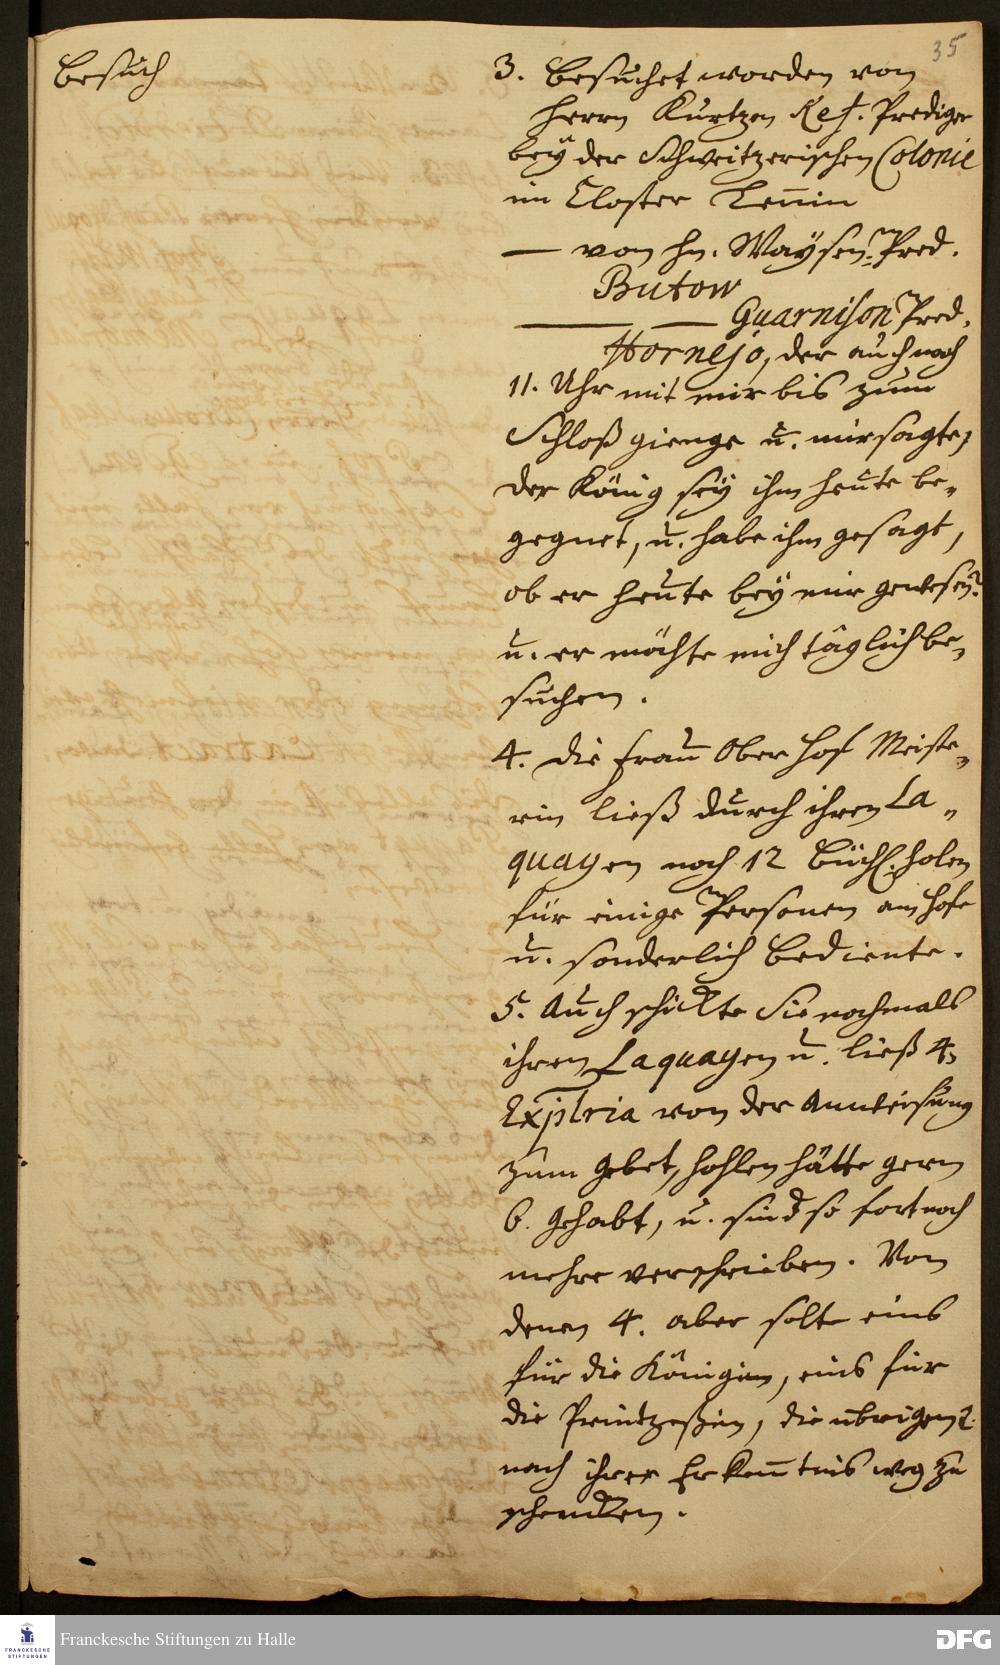 35
Besuch
3. Besuchet worden von
Herrn Kurtzen Ref. Prediger
bey der Schweitzerischen Colonie
im Closter Lenin
— von Hn. Waysen-Pred.
Butow
— — Guarnison Pred.
Hornejo, der auch nach
11. Uhr mit mir bis zum
Schloß gienge u. mir sagte,
der König sey ihm heute be-
gegnet, u. habe ihm gesagt,
ob er heute bey mir gewesen?
u. er möchte mich täglich be-
suchen.
4. Die Frau Ober Hof Meiste-
rin ließ durch ihren La-
quayen noch 12 Büchl. holen
für einige Personen am Hofe
u. sonderlich Bediente.
5. Auch schickte Sie nochmals
ihren Laquayen u. ließ 4
Explria von der Anweisung
zum Gebet, hohlen hätte gern
6. gehabt, u. sind so fort noch
mehre verschrieben. Von
denen 4. aber solte eins
für die Königin, eins für
die Printzeßin, die übrigen 2.
nach ihrer Erkenntnis weg zu
schencken.
Franckesche Stiftungen zu Halle
FRANCKESCHE
STIFTUNGEN
DFG